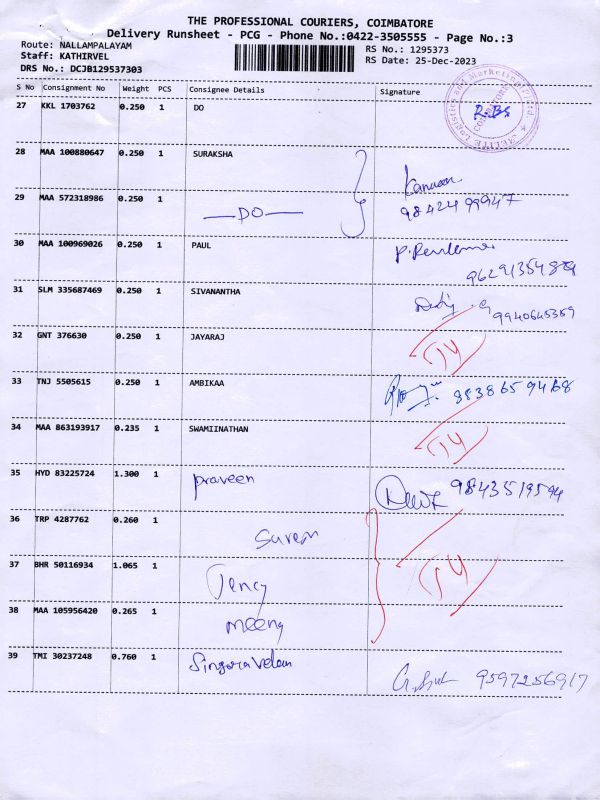 THE PROFESSIONAL COURIERS, COIMBATORE
Delivery Runsheet - PCG - Phone No.:0422-3505555 - Page No.:3
Route: NALLAMPALAYAM
RS No.: 1295373
Staff: KATHIRVEL
RS Date: 25-Dec-2023
DRS No.: DCJB129537303
S No Consignment No Weight PCS Consignee Details Signature
27 KKL 1703762 0.250 1 DO
28 MAA 100880647 0.250 1 SURAKSHA
29 MAA 572318986 0.250 1 —DO— 9842499947
30 MAA 100969026 0.250 1 PAUL
31 SLM 335687469 0.250 1 SIVANANTHA 9940645359
32 GNT 376630 0.250 1 JAYARAJ
33 TNJ 5505615 0.250 1 AMBIKAA 9383659468
34 MAA 863193917 0.235 1 SWAMIINATHAN
35 HYD 83225724 1.300 1 praveen 9843519594
36 TRP 4287762 0.260 1
37 BHR 50116934 1.065 1 Jency
38 MAA 105956420 0.265 1 meena
39 TMI 30237248 0.760 1 Singaravelan 9597256917